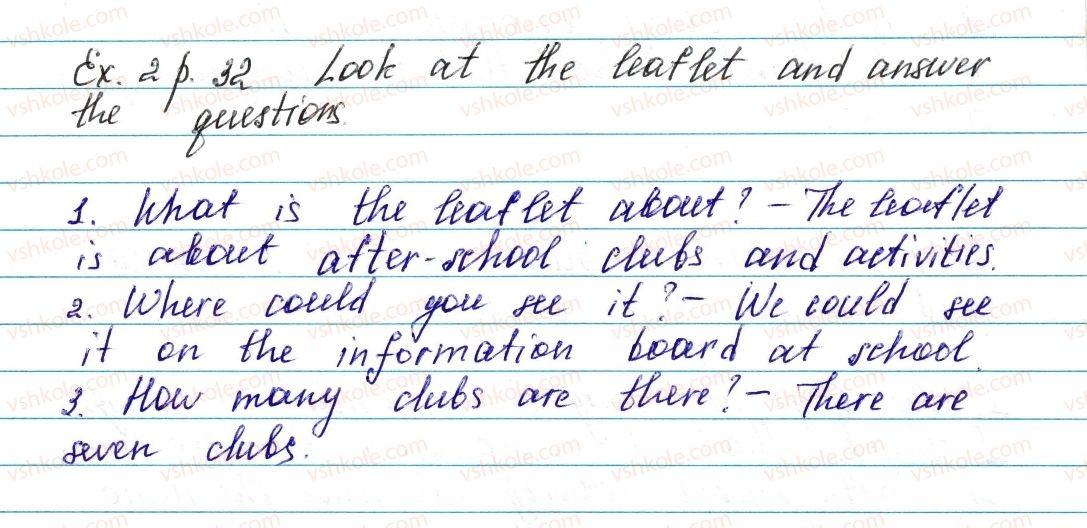 Ex. 2 p. 32 Look at the leaflet and answer
the questions.
1. What is the leaflet about? – The leaflet
is about after-school clubs and activities.
2. Where could you see it? – We could see
it on the information board at school.
3. How many clubs are there? – There are
seven clubs.